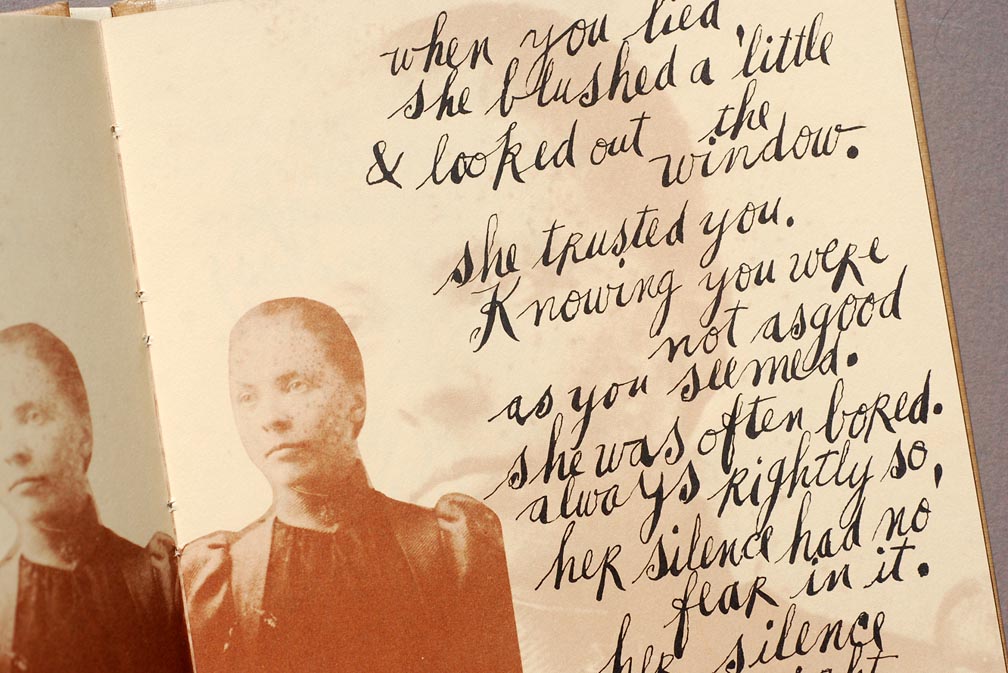 when you lied,
she blushed a little
& looked out the
window.
she trusted you.
Knowing you were
not as good
as you seemed.
she was often bored.
always rightly so,
her silence had no
fear in it.
her silence